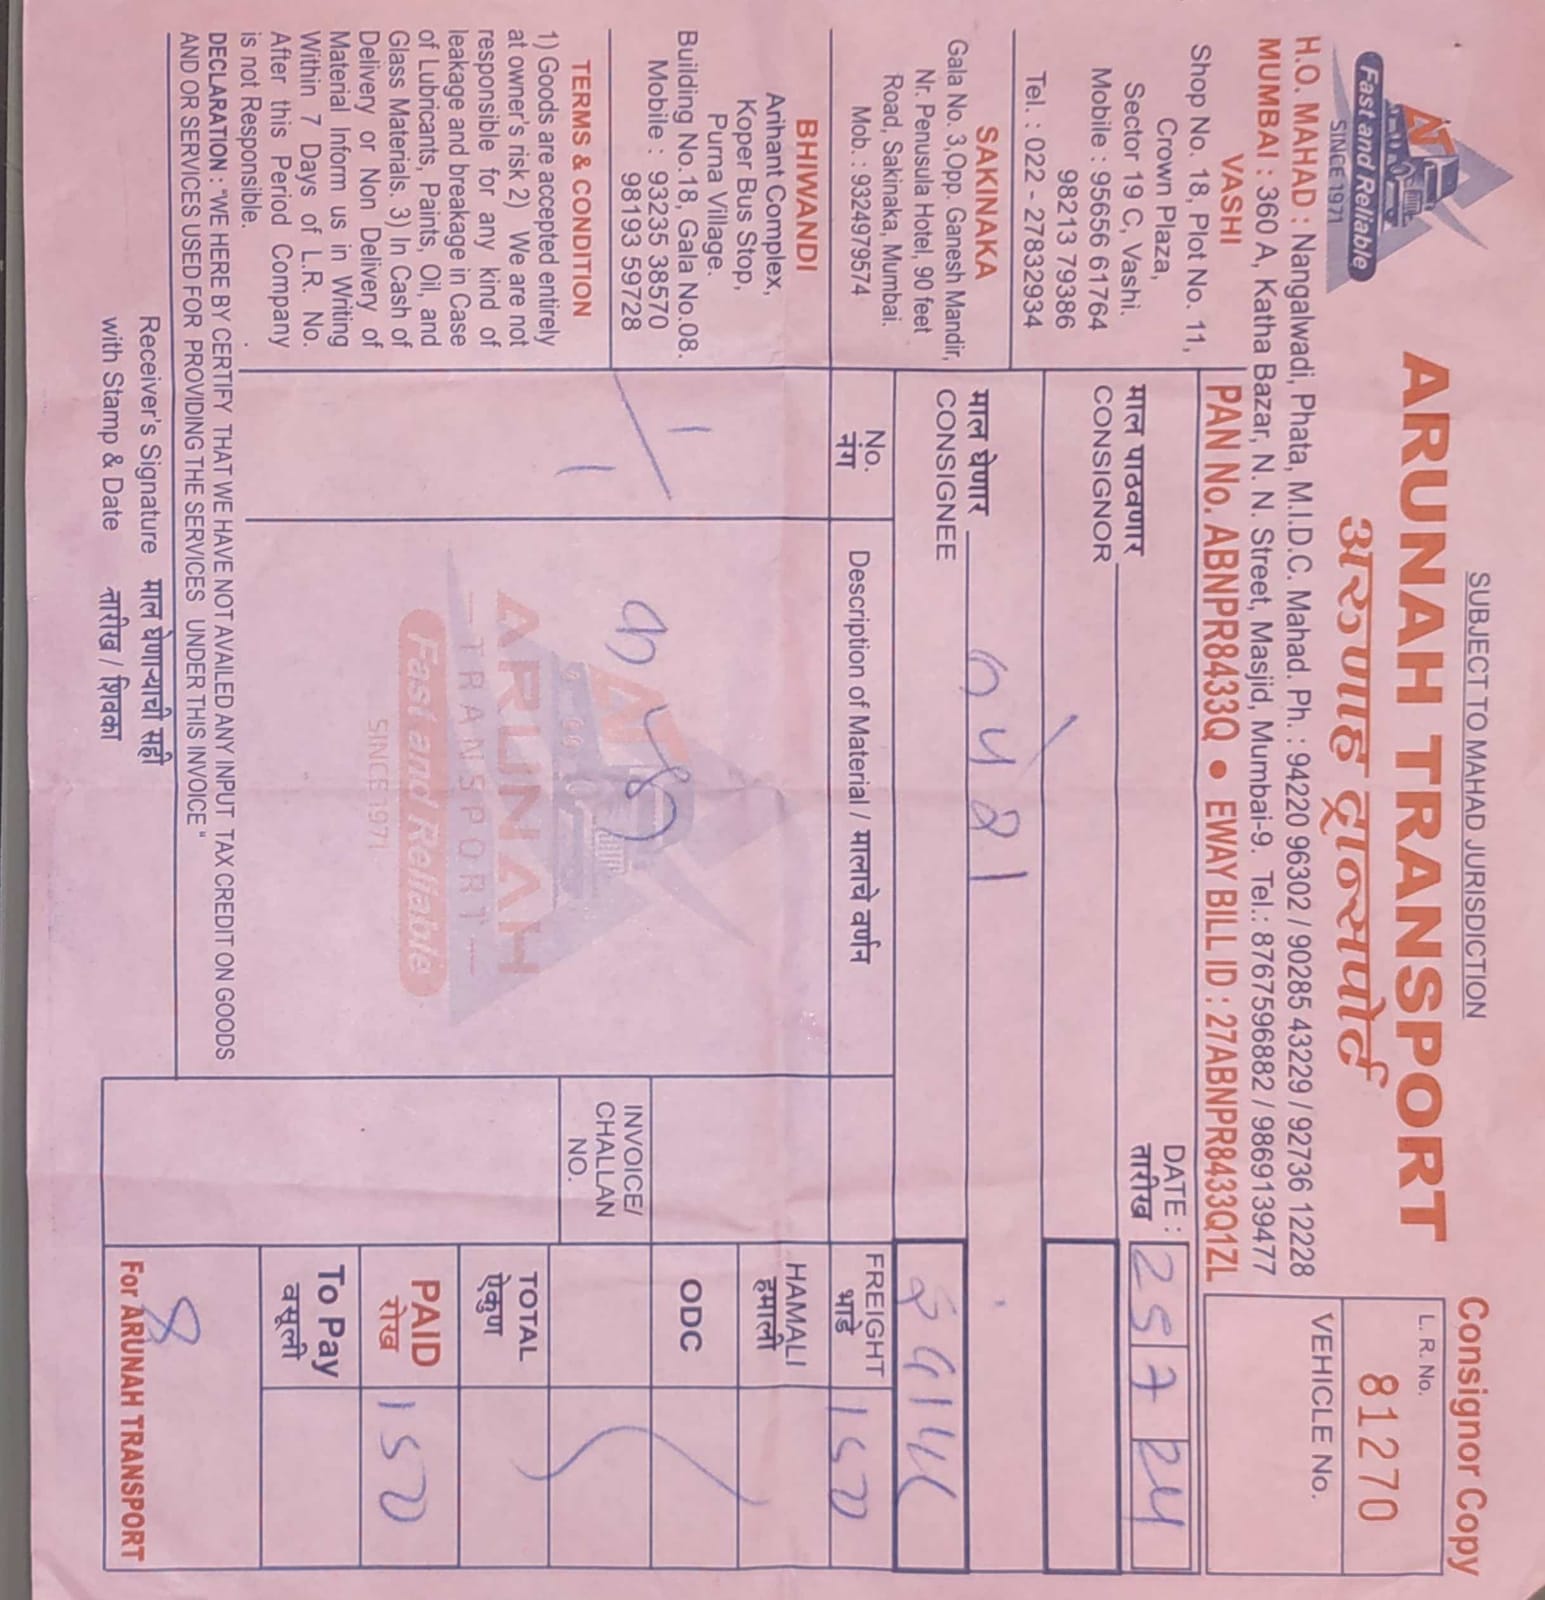 SUBJECT TO MAHAD JURISDICTION
Consignor Copy
AT
Fast and Reliable
SINCE 1971
ARUNAH TRANSPORT
अरुणाह ट्रान्सपोर्ट
L. R. No.
81270
VEHICLE No.
H.O. MAHAD : Nangalwadi, Phata, M.I.D.C. Mahad. Ph. : 94220 96302 / 90285 43229 / 92736 12228
MUMBAI : 360 A, Katha Bazar, N. N. Street, Masjid, Mumbai-9. Tel.: 8767596882 / 9869139477
PAN No. ABNPR8433Q ● EWAY BILL ID : 27ABNPR8433Q1ZL
VASHI
Shop No. 18, Plot No. 11,
Crown Plaza,
Sector 19 C, Vashi.
Mobile : 95656 61764
98213 79386
Tel. : 022 - 27832934
SAKINAKA
Gala No. 3,Opp. Ganesh Mandir,
Nr. Penusula Hotel, 90 feet
Road, Sakinaka, Mumbai.
Mob. : 9324979574
BHIWANDI
Arihant Complex,
Koper Bus Stop,
Purna Village.
Building No.18, Gala No.08.
Mobile : 93235 38570
98193 59728
TERMS & CONDITION
1) Goods are accepted entirely
at owner's risk 2) We are not
responsible for any kind of
leakage and breakage in Case
of Lubricants, Paints, Oil, and
Glass Materials. 3) In Cash of
Delivery or Non Delivery of
Material Inform us in Writing
Within 7 Days of L.R. No.
After this Period Company
is not Responsible.
DATE :
तारीख
25 7 24
माल पाठवणार
CONSIGNOR
माल घेणार
CONSIGNEE
No.
नंग
Description of Material / मालाचे वर्णन
1
1
AT
ARUNAH
TRANSPORT
Fast and Reliable
SINCE 1971
INVOICE/
CHALLAN
NO.
FREIGHT
भाडे
150
HAMALI
हमाली
ODC
TOTAL
ऐकुण
PAID
रोख
150
To Pay
वसूली
DECLARATION : "WE HERE BY CERTIFY THAT WE HAVE NOT AVAILED ANY INPUT TAX CREDIT ON GOODS
AND OR SERVICES USED FOR PROVIDING THE SERVICES UNDER THIS INVOICE"
Receiver's Signature माल घेणाऱ्याची सही
with Stamp & Date तारीख / शिक्का
For ARUNAH TRANSPORT